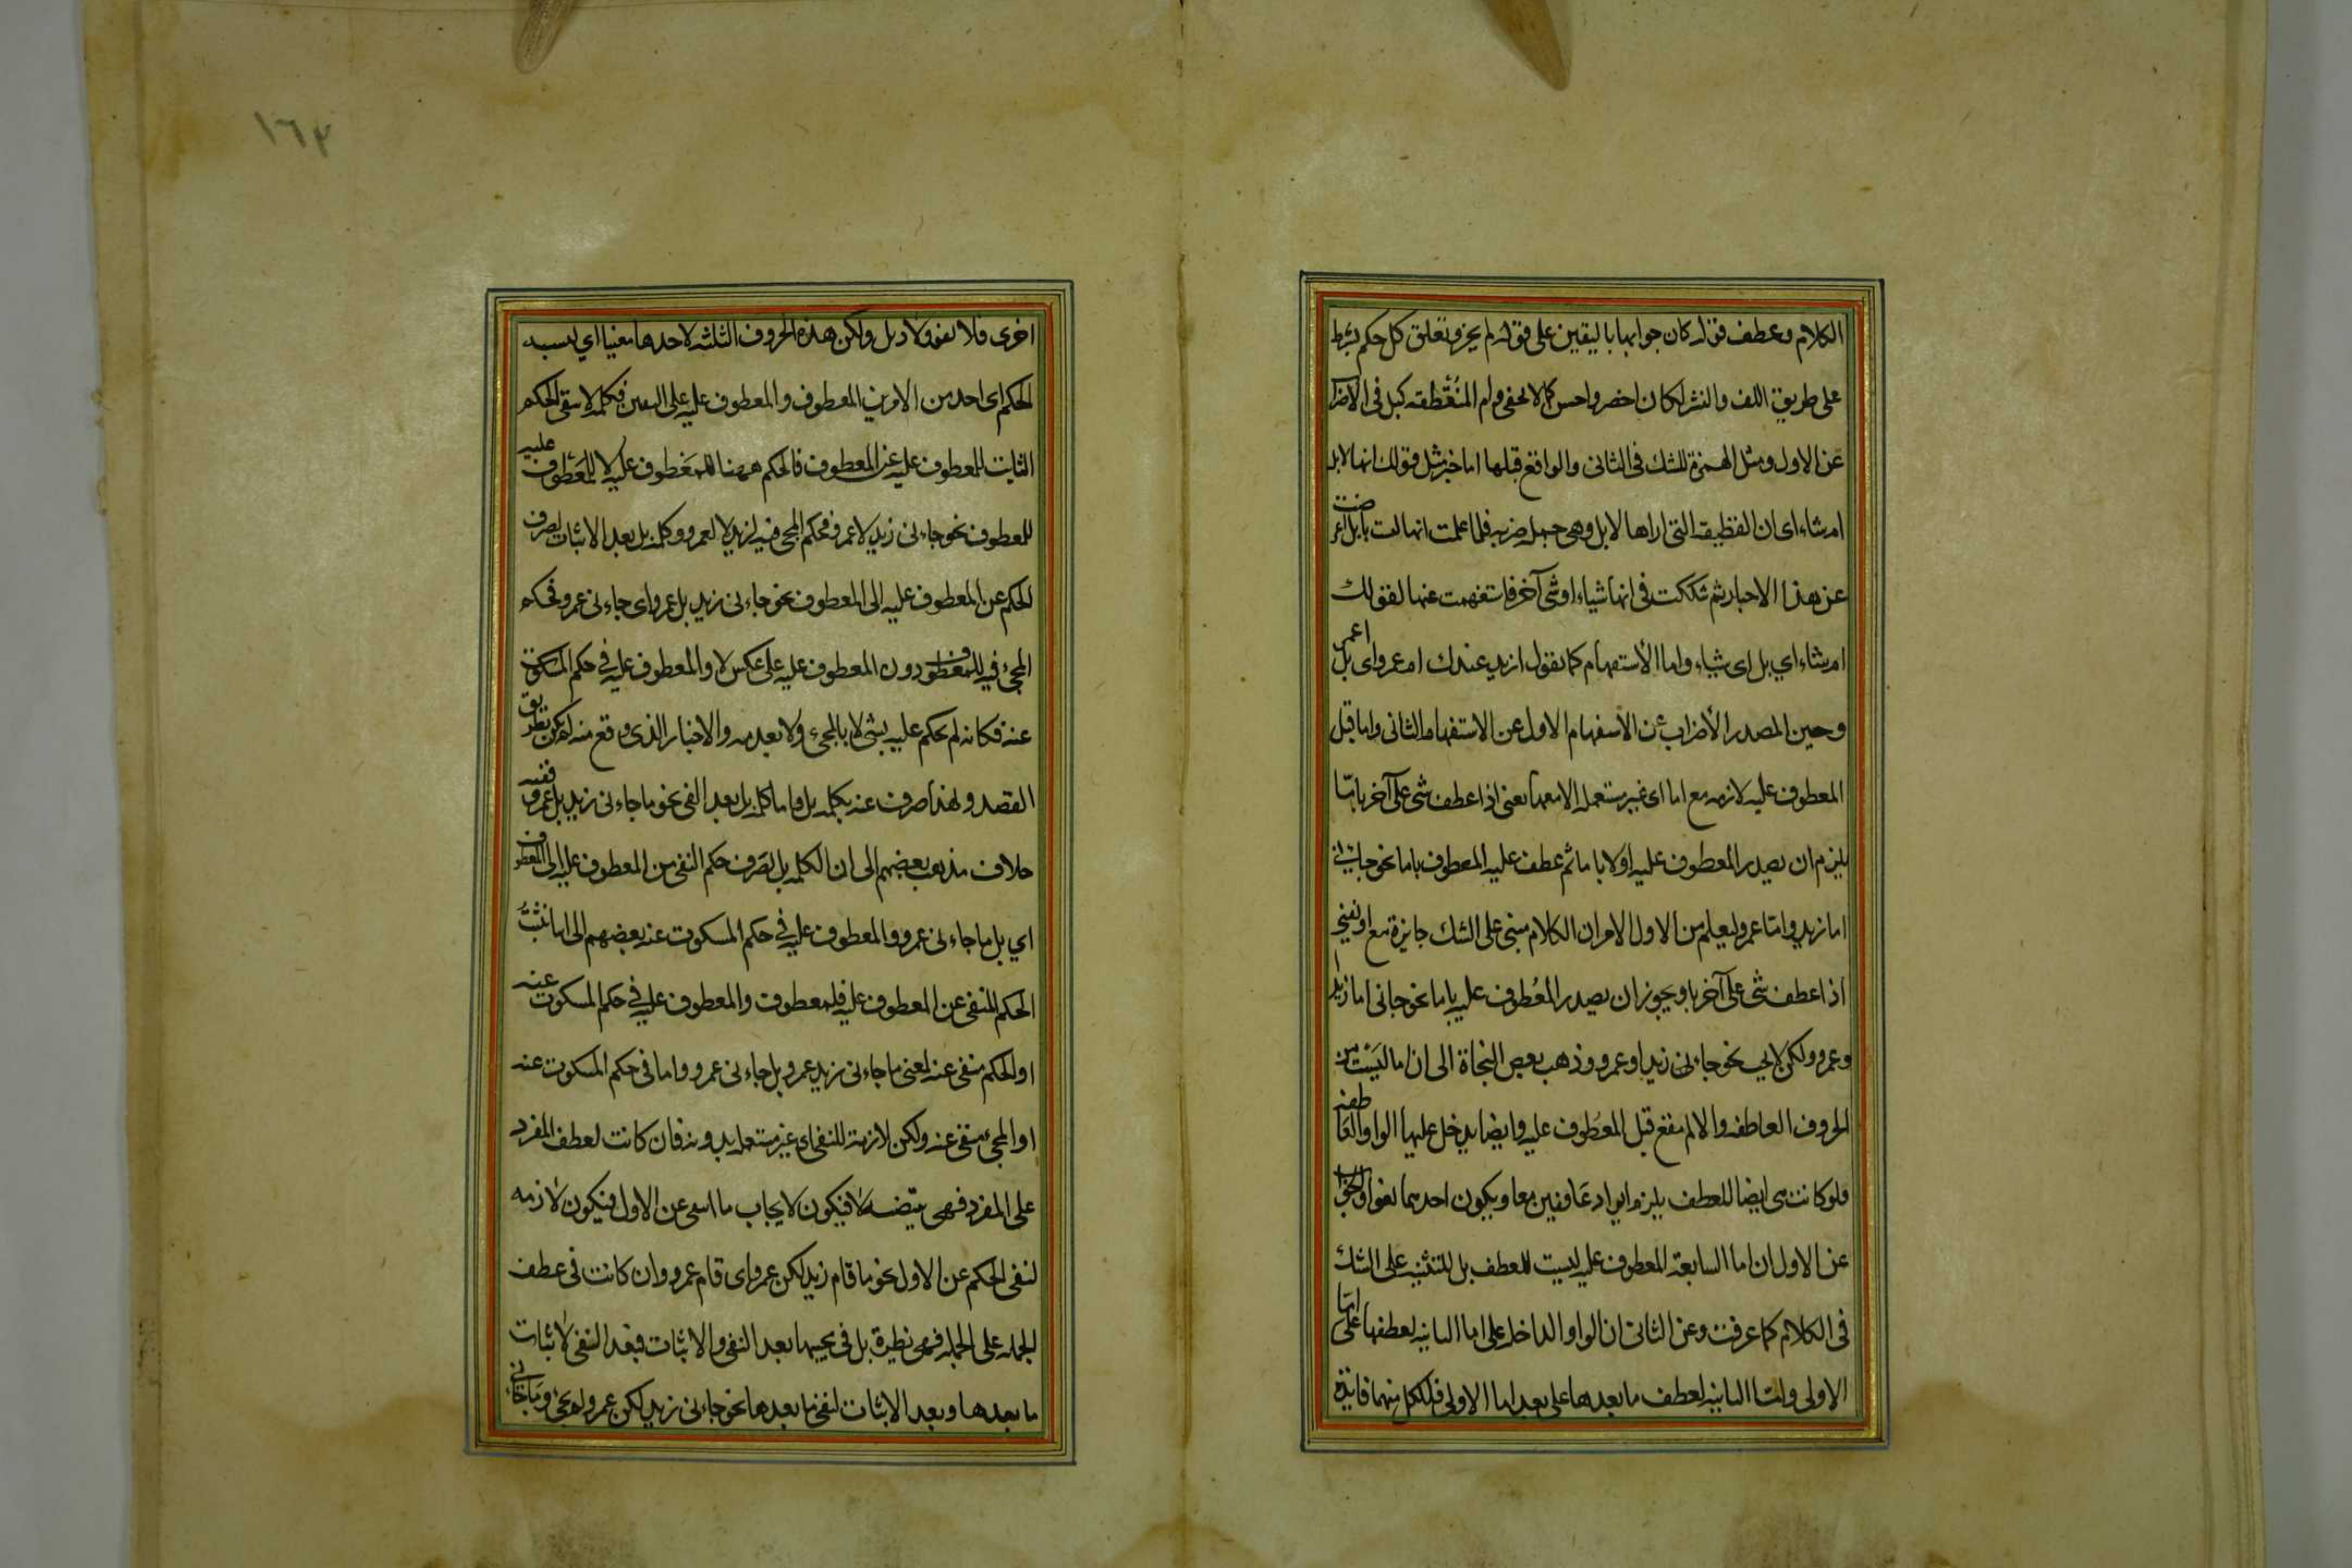 الكلام وعطف قوله كان جوابها باليقين على قوله لم يجز وتعلق كل حكم بشرط
على طريق اللف والنشر لكان اخصر واحسن كما لا يخفى وام المنقطعة كبل في الاضراب
عن الاول ومثل الهمزة للشك في الثاني والواقع قبلها اما خبر مثل قولك انها لابل
ام شاء اي ان القطيعة التي اراها لابل وهي جملة خبرية فلما علمت انها ليست بابل اعرضت
عن هذا الاخبار ثم شككت في انها شياء او شئ آخر فاستفهمت عنها بقولك
ام شاء اي بل اي شياء واما الاستفهام كما تقول ازيد عندك ام عمرو اي بل اعمرو
وحين المصدر الأضراب عن الاستفهام الاول عن الاستفهام الثاني واما قبل
المعطوف عليه لازمة مع اما اي غير مستعملة الا معها يعني اذا عطف شئ على آخر باما
يلزم ان يصدر المعطوف عليه اولا باما ثم عطف عليه المعطوف باما نحو جاءني
اما زيد واما عمرو ليعلم من الاول الامر ان الكلام مبني على الشك جايزة مع او يعني
اذا عطف شئ على آخر باو يجوز ان يصدر المعطوف عليه باما نحو جاني اما زيد ا
وعمرو ولكن لا يجب نحو جاءني زيد او عمرو وذهب بعض النحاة الى ان اما ليست من
الحروف العاطفة والا لم يقع قبل المعطوف عليه وايضا يدخل عليها الواو العاطفة
فلو كانت هي ايضا للعطف يلزم ايراد عاطفين معا ويكون احدهما لغوا والجواب
عن الاول ان اما السابعة المعطوف عليه ليست للعطف بل للتنبيه على الشك
في الكلام كما عرفت وعن الثاني ان الواو الداخلة على اما الثانية لعطفها على اما
الاولى واما الثانية لعطف ما بعدها على بعد اما الاولى فلكل منهما فايدة
اخرى فلا لغو ولا وبل ولكن هذه الحروف الثلثة لاحدها معينا اي لنسبة
الحكم اي احد من الامرين المعطوف والمعطوف عليه على التعين فكلمة لا ينفي الحكم
الثابت للمعطوف عليه عن المعطوف فالحكم ههنا للمعطوف عليه لا للمعطوف عليه
للمعطوف نحو جاءني زيد لا عمرو فحكم المجئ فيه لزيد لا لعمرو وكلمة بل بعد الاثبات لصرف
الحكم عن المعطوف عليه الى المعطوف نحو جاءني زيد بل عمرو اي جاءني عمرو فحكم
المجئ فيه للمعطوف دون المعطوف عليه على عكس لا والمعطوف عليه في حكم المسكوت
عنه فكانه لم يحكم عليه بشئ لا بالمجئ ولا بعدمه والاخبار الذي وقع منه لم يكن بطريق
القصد ولهذا صرفت عنه بكلمة بل واما كلمة بل بعد النفي نحو ما جاءني زيد بل عمرو ففيه
خلاف مذهب بعضهم الى ان الكلمة بل لصرف حكم النفي من المعطوف عليه الى المعطوف
اي بل ما جاءني عمرو والمعطوف عليه في حكم المسكوت عنه بعضهم الى انها تثبت
الحكم المنفي عن المعطوف عليه فلمعطوف والمعطوف عليه في حكم المسكوت عنه
او الحكم منفي عنه يعني ما جاءني زيد عمرو بل جاءني عمرو واما في حكم المسكوت عنه
او المجئ منفي عنه ولكن لازمة للنفي اي غير مستعملة بدونه فان كانت لعطف المفرد
على المفرد فهي نقيضه لا فيكون لايجاب ما انتفى عن الاول فيكون لازمه
لنفي الحكم عن الاول نحو ما قام زيد لكن عمرو اي قام عمرو وان كانت في عطف
الجملة على الجملة فهي نظيرة بل في مجيئها بعد النفي والاثبات فبعد النفي لاثبات
ما بعدها وبعد الاثبات لنفي ما بعدها نحو جاءني زيد لكن عمرو لم يجئ وما جاءني
١٦٣